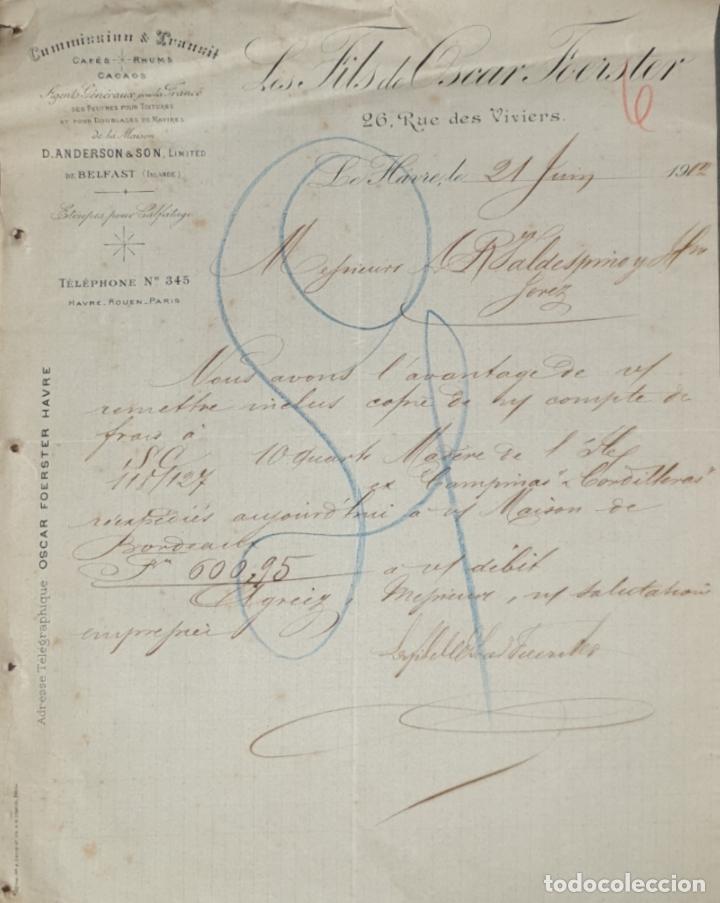 Commission & Transit
CAFÉS RHUMS
CACAOS
Agents Généraux pour la France
DES FEUTRES POUR TOITURES
ET POUR DOUBLAGES DE NAVIRES
de la Maison
D. ANDERSON & SON, LIMITED
DE BELFAST (IRLANDE)
Etoupes pour Calfatage
TÉLÉPHONE Nº 345
HAVRE_ROUEN_PARIS
Adresse Télégraphique OSCAR FOERSTER HAVRE
Les Fils de Oscar Foerster
26, Rue des Viviers.
6
Le Havre, le 21 Juin 19
Messieurs A. R. Valdespino y Hno
Jerez
Nous avons l'avantage de v/
remettre inclus copie de n/ compte de
frais à
10 quarts Madère de l'Ile
115/127 ex "Campinas" "Cordilleras"
réexpédiés aujourd'hui à v/ Maison de
Bordeaux
Frs 600,95 à v/ débit
Agréez, Messieurs, n/ salutations
empressées
Les Fils de Oscar Foerster
todocoleccion.net